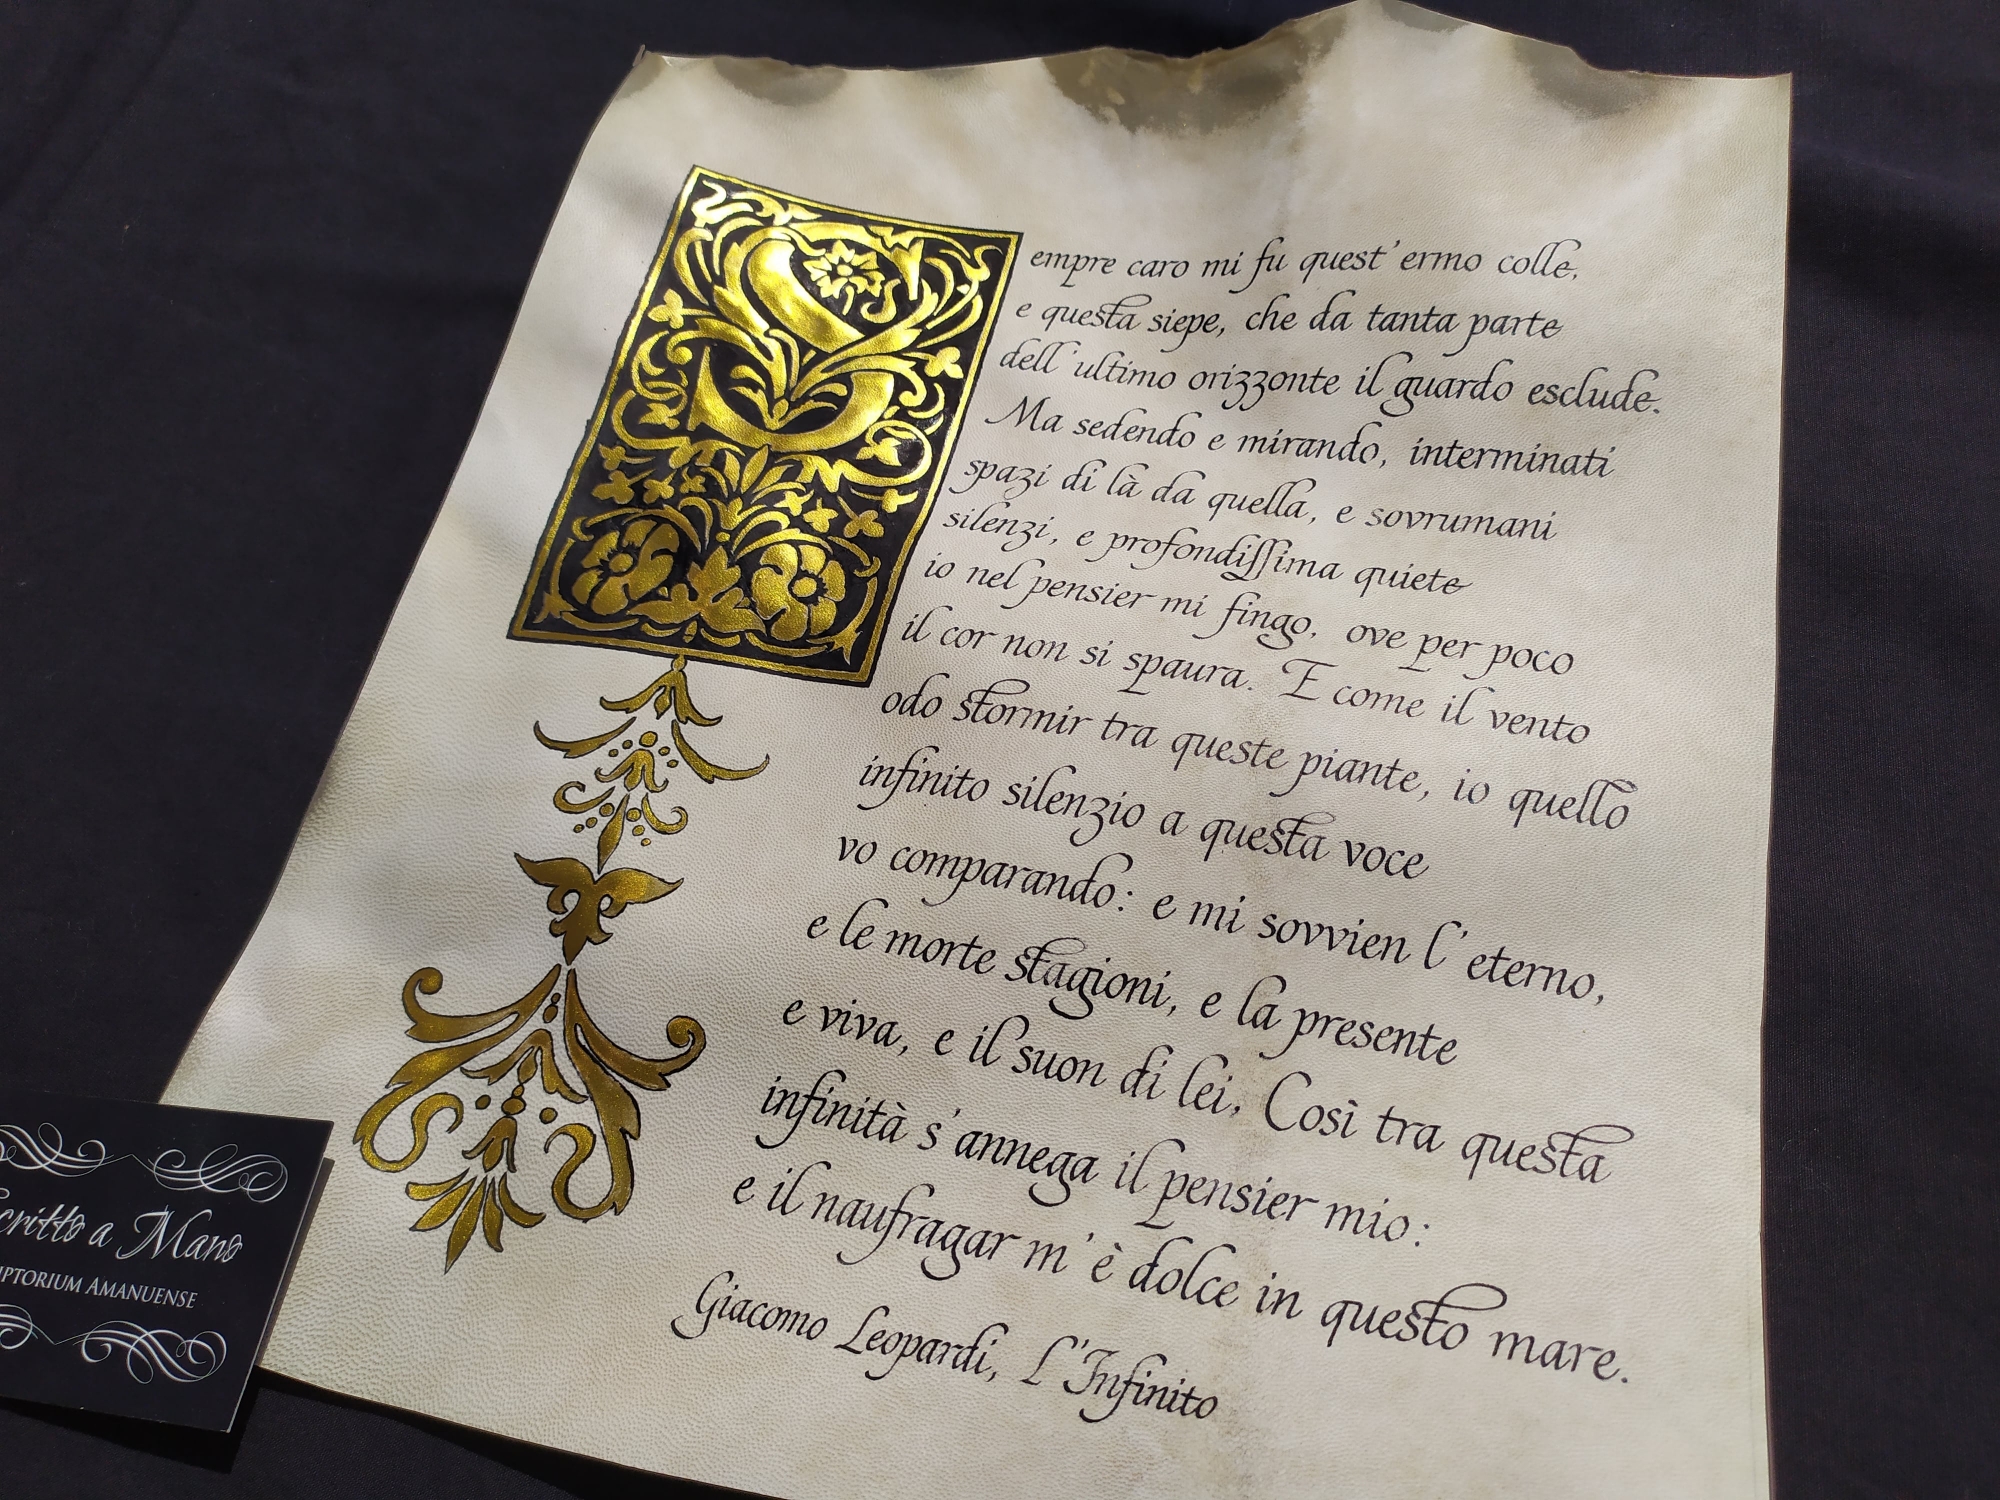 Sempre caro mi fu quest'ermo colle,
e questa siepe, che da tanta parte
dell'ultimo orizzonte il guardo esclude.
Ma sedendo e mirando, interminati
spazi di là da quella, e sovrumani
silenzi, e profondissima quiete
io nel pensier mi fingo, ove per poco
il cor non si spaura. E come il vento
odo stormir tra queste piante, io quello
infinito silenzio a questa voce
vo comparando: e mi sovvien l'eterno,
e le morte stagioni, e la presente
e viva, e il suon di lei. Così tra questa
infinità s'annega il pensier mio:
e il naufragar m'è dolce in questo mare.
Giacomo Leopardi, L'Infinito
critto a Mano
IPTORIUM AMANUENSE